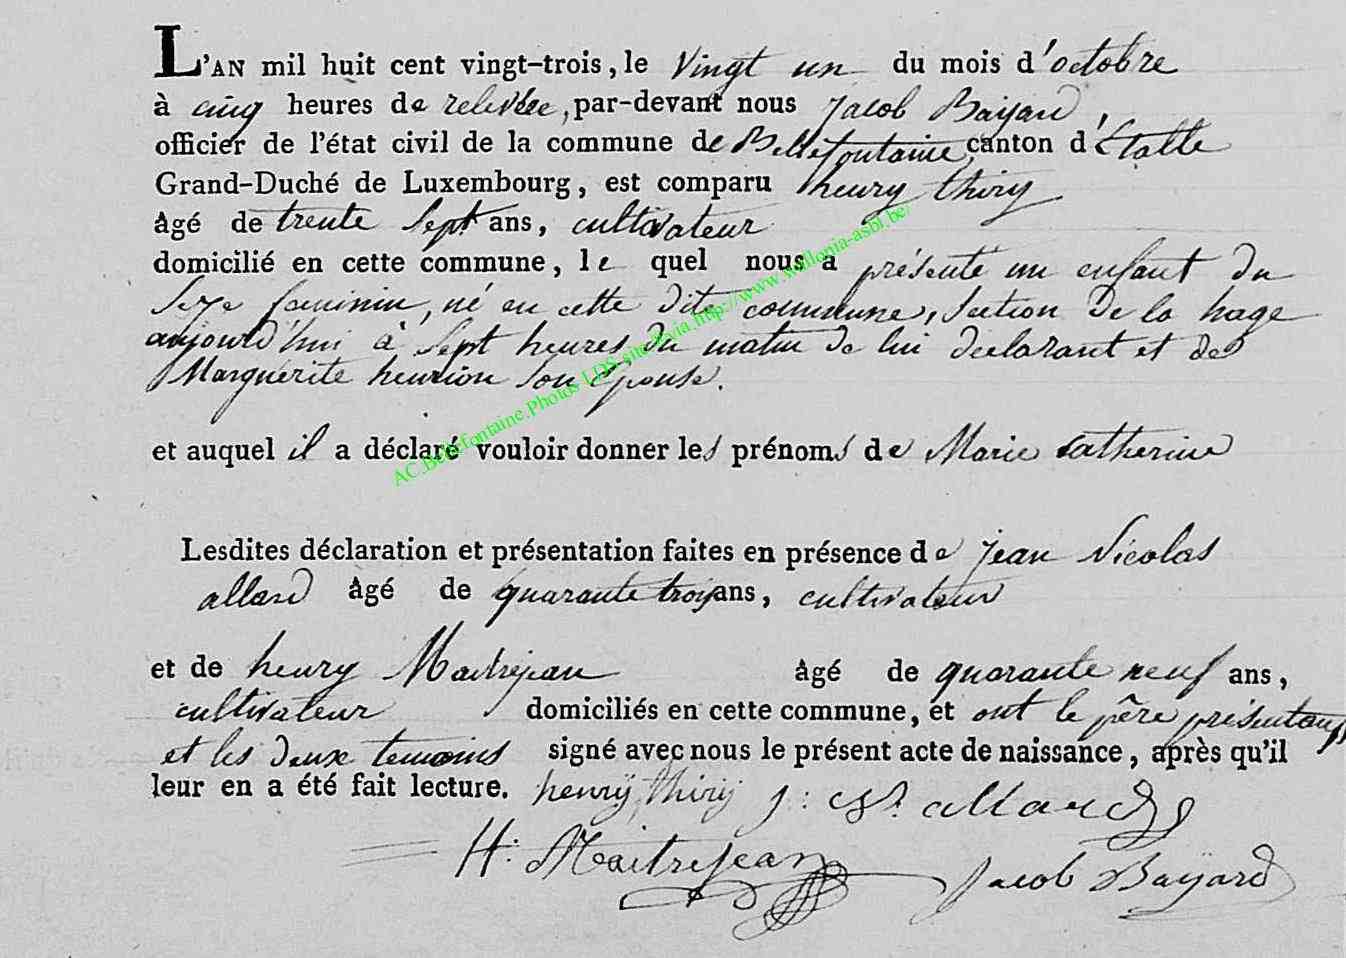 L'AN mil huit cent vingt-trois, le Vingt un du mois d'octobre
à cinq heures de relevée, par-devant nous Jacob Baÿard,
officier de l'état civil de la commune de Bellefontaine, canton d'Etalle
Grand-Duché de Luxembourg, est comparu henry thiry
âgé de trente Sept ans, cultivateur
domicilié en cette commune, le quel nous a présenté un enfant du
Sexe feminin, né en cette dite commune, Section de la hage
aujourd'hui à Sept heures du matin de lui declarant et de
Marguerite henrion Son Epouse.
et auquel il a déclaré vouloir donner les prénoms de Marie Catherine
Lesdites déclaration et présentation faites en présence de Jean Nicolas
allard âgé de quarante trois ans, cultivateur
et de henry Maitrejean âgé de quarante neuf ans,
cultivateur domiciliés en cette commune, et ont le père présentant
et les deux temoins signé avec nous le présent acte de naissance, après qu'il
leur en a été fait lecture. henrÿ thirÿ J: allard
H: Maitrejean Jacob Baÿard
AC.Bellefontaine.Photos LDS-site via http://www.wallonia-asbl.be/